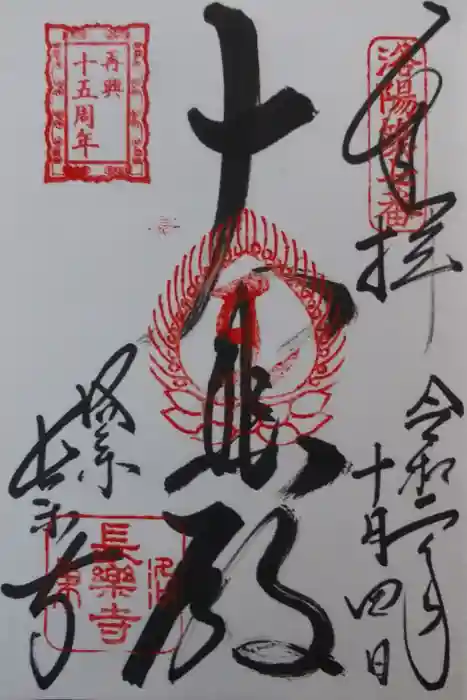 奉拝
洛陽第七番
令和二年
十月四日
大悲殿
再興
十五周年
長樂寺
長楽寺